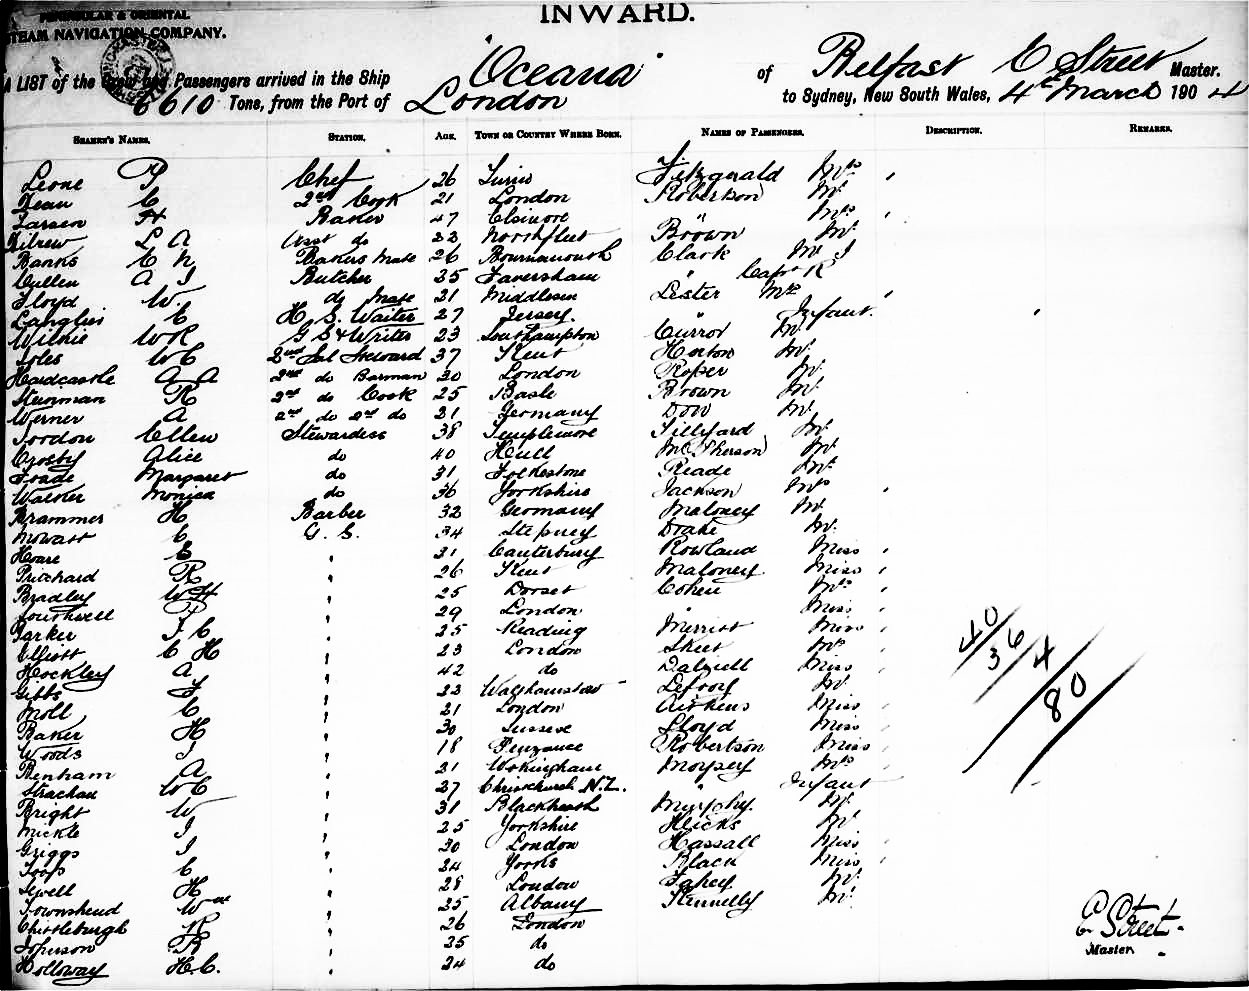 INWARD.
PENINSULAR & ORIENTAL
STEAM NAVIGATION COMPANY.
A LIST of the Crew and Passengers arrived in the Ship "Oceana" of Belfast C Street Master.
6610 Tons, from the Port of London to Sydney, New South Wales, 4th March 1904
SEAMEN'S NAMES. STATION. AGE. TOWN OR COUNTRY WHERE BORN. NAMES OF PASSENGERS. DESCRIPTION. REMARKS.
Leone P Chef 26 Fitzgerald Mrs
C 2nd Cook 21 London Robertson Mr
Larsen H Baker 47 Elsinore " Mrs
L A Asst do 22 Northfleet Brown Mr
Banks C N Bakers Mate 26 Bournemouth Clark Mr J
Cullen A J Butcher 35 Faversham " Capt R
Floyd W. do Mate 21 Middlesex Lister Mrs
C H. S. Waiter 27 Jersey. " Infant.
Wilkie W R G S & Writer 23 Southampton Mr
W C 2nd Sal Steward 37 Kent Horton Mr
Hardcastle A A 2nd do Barman 30 London Roper Mr
Steinman R 2nd do Cook 25 Basle Brown Mr
Werner A 2nd do 2nd do 21 Germany Dow Mr
Ellen Stewardess 38 Templemore Tillyard Mr
Crosby Alice do 40 Hull McPherson Mr
Margaret do 31 Folkestone Reade Mr
Walker Monica do 36 Yorkshire Jackson Mrs
Krammer H Barber 32 Germany Maloney Mr
Mowatt C G. S. 34 Stepney Drake Mr
Hoare E " 31 Canterbury Rowland Miss
Pritchard R " 26 Kent Maloney Miss
Bradley W H " 25 Dorset Cohen Mrs
Southwell F " 29 London " Miss
Parker F C " 25 Reading Merritt Miss
Elliott C H " 23 London Skeet Mrs
Hockley A " 42 do Dalziell Miss
Gibbs F " 23 Walthamstow Lefroy Mr
Moll C " 21 London Aitkens Miss
Baker H " 30 Sussex Lloyd Miss
Woods J " 18 Penzance Robertson Miss
Benham A " 21 Wokingham Moysey Mrs
Strachan W C " 27 Christchurch N.Z. " Infant
Bright W " 31 Blackheath Murphy Mr
Mickle J " 25 Yorkshire Hicks Mr
Griggs J " 30 London Hassall Miss
C " 24 Yorks Black Miss
Sewell H " 28 London Fahey Mr
Townshend Wm " 25 Albany Kennelly Mr
Chittleburgh R " 26 London
Johnson R " 25 do
Holloway H C. " 24 do
40/36/4/80
C Street.
Master.